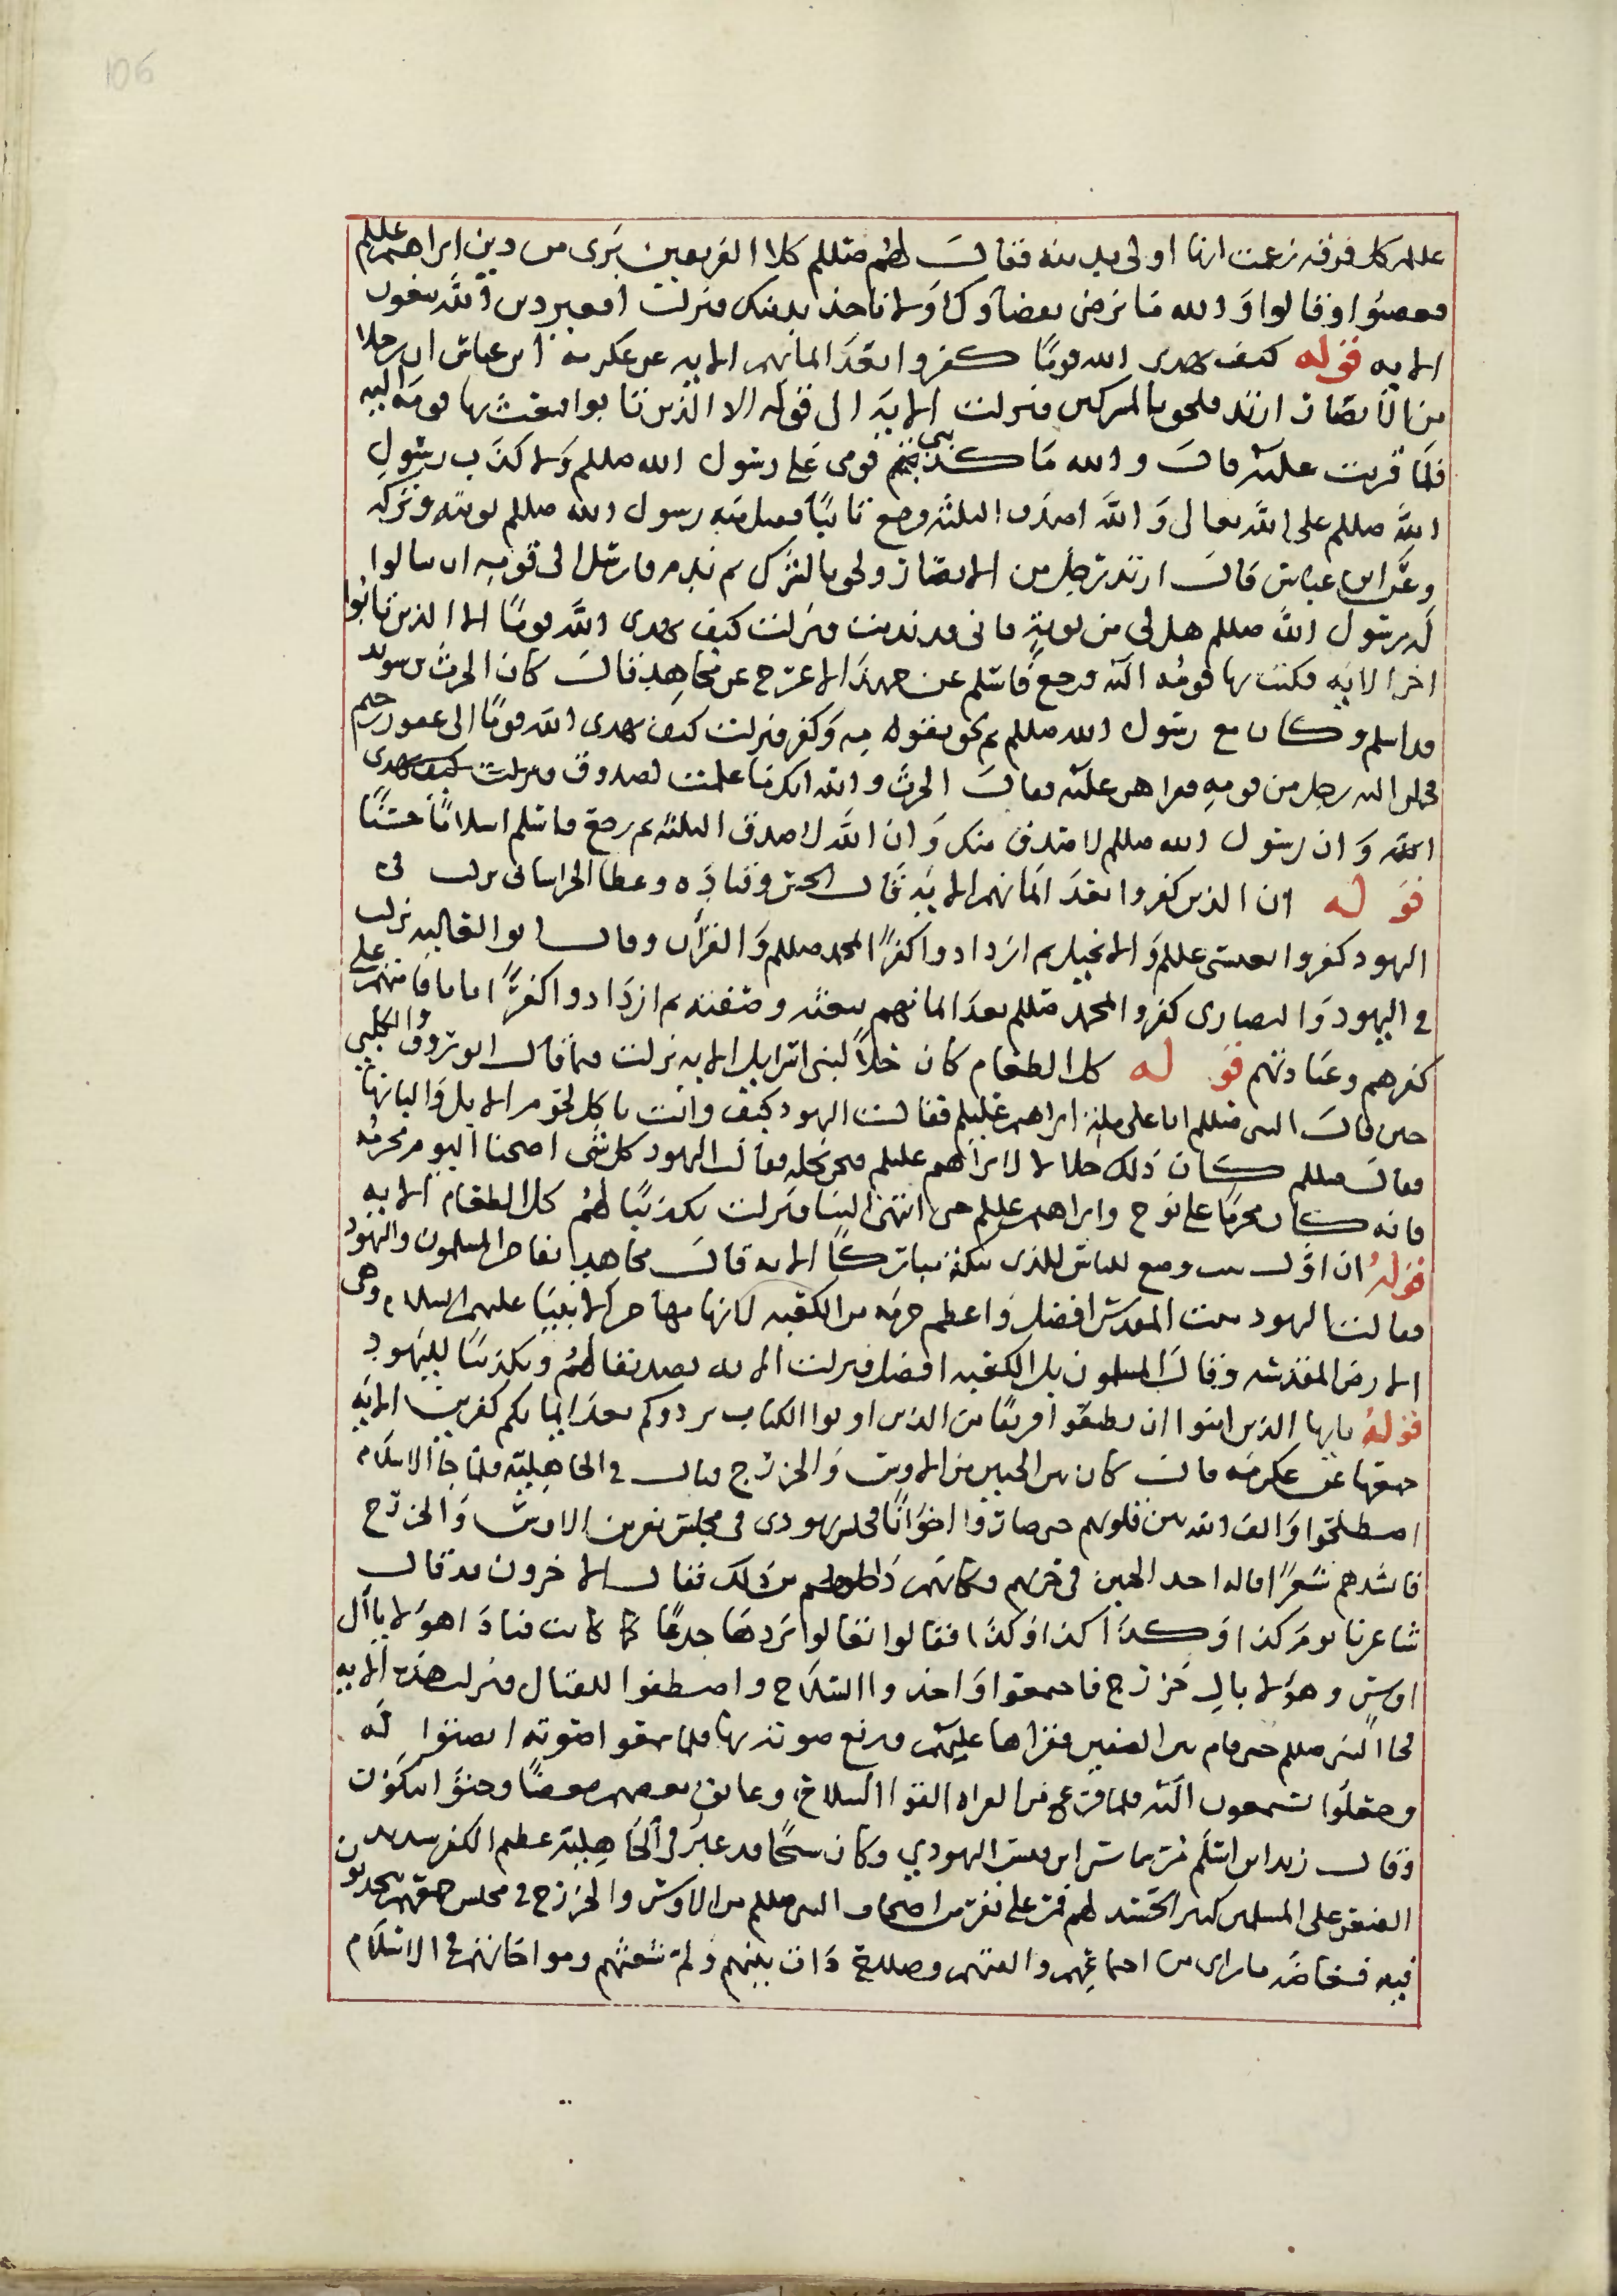 106
عللم كل فرقه زعمت انها اولى بدينه فقال لهم صللم كلا الفريقين بَرى من دين ابراهيم عللم
فغضبوا وقالوا والله ما نرضى بقضاوك ولا ناخذ بدينك فنزلت افغير دين الله يبغون
الايه قوله كيف يهدى الله قومًا كفروا بعد ايمانهم الايه عن عكرمه ابن عباس ان رجلا
من الانصار ارتد فلحق بالمشركين فنزلت الايه الى قوله الا الذين تابوا فبعث بها قومه اليه
فلما قريت عليه قال والله ما كذبني قومي على رسول الله صللم ولا كذب رسول
الله صللم على الله تعالى والله اصدق الثلثه ورجع تايبًا فقبل منه رسول الله صللم توبته وتركه
وعن ابن عباس قال ارتد رجل من الانصار ولحق بالشرك ثم ندم فارسل الى قومه ان سالوا
له رسول الله صللم هل لي من توبة فاني قد ندمت فنزلت كيف يهدى الله قومًا الا الذين تابوا
اخر الايه فكتب بها قومه اليه فرجع فاسلم عن حميد الاعرج عن مجاهد قال كان الحرث بن سويد
قد اسلم وكان مع رسول الله صللم ثم لحق بقومه وكفر فنزلت كيف يهدى الله قومًا الى غفور رحيم
فحملها اليه رجل من قومه فقراهن عليه فقال الحرث والله انك ما علمت لصدوق فنزلت كيف يهدى
الله وان رسول الله صللم لاصدق منك وان الله لاصدق الثلثه ثم رجع فاسلم اسلامًا حسنًا
قوله ان الذين كفروا بعد ايمانهم الايه قال الحسن وقتاده وعطا الخراسانى نزلت فى
اليهود كفروا بعيسى عللم والانجيل ثم ازدادوا كفرًا بمحمد صللم والقرآن وقال ابو العاليه نزلت
في اليهود والنصارى كفروا بمحمد صللم بعد ايمانهم بنعته وصفته ثم ازدادوا كفرًا باقامتهم على
كفرهم وعنادتهم قوله كل الطعام كان حلاً لبنى اسرايل الايه نزلت فيما قال ابو روق والكلبي
حين قال النبي صللم انا على ملة ابراهيم عليلم فقالت اليهود كيف وانت تاكل لحوم الابل والبانها
فقال صللم كان ذلك حلالا لابراهيم عليلم فنحن نحله فقالت اليهود كل شي اصبحنا اليوم نحرمه
فانه كان محرمًا على نوح وابراهيم عليلم حتى انتهى الينا فنزلت تكذيبًا لهم كل الطعام الايه
قوله ان اول بيت وضع للناس للذى ببكة مباركًا الايه قال مجاهد تفاخر المسلمون واليهود
فقالت اليهود بيت المقدس افضل واعظم حرمه من الكعبه لانها مهاجر الانبيا عليهم السلام وهى
الارض المقدسه وقال المسلمون بل الكعبه افضل فنزلت الايه تصديقا لهم وتكذيبًا لليهود
قوله يايها الذين امنوا ان تطيعوا فريقًا من الذين اوتوا الكتاب يردوكم بعد ايمانكم كفرين الايه
عن عكرمه قال كان بين الحيين من الاوس والخزرج قتال فى الجاهلية فلما جا الاسلام
اصطلحوا والف الله بين قلوبهم حتى صاروا اخوانًا فجلس يهودى فى مجلس نفر من الاوس والخزرج
فانشدهم شعرًا قاله احد الحيين فى حربهم فكانهم داخلهم من ذلك فقال الاخرون قد قال
شاعرنا يوم كذا وكذا كذا وكذا فقالوا تعالوا نردها جدعًا كما كانت فنادا هولا يا آل
اوس وهولا يال خزرج فاجمعوا واخذوا السلاح واصطفوا للقتال فنزلت هذه الايه
فجا النبي صللم حتى قام بين الصفين فقراها عليهم ورفع صوته بها فلما سمعوا صوته انصتوا له
وجعلوا يستمعون اليه فلما فرغ من القراه القوا السلاح وعانق بعضهم بعضًا وجثوا يبكون
وقال زيد ابن اسلم مر شاس ابن قيس اليهودي وكان شيخًا قد غبر في الجاهلية عظيم الكفر شديد
الضغن على المسلمين كثير الحسد لهم فمر على نفر من اصحاب النبي صللم من الاوس والخزرج في مجلس جمعهم يتحدثون
فيه فغاضه ما راى من اجماعهم والفتهم وصلاح ذات بينهم ولم شعثهم ومواخاتهم فى الاسلام